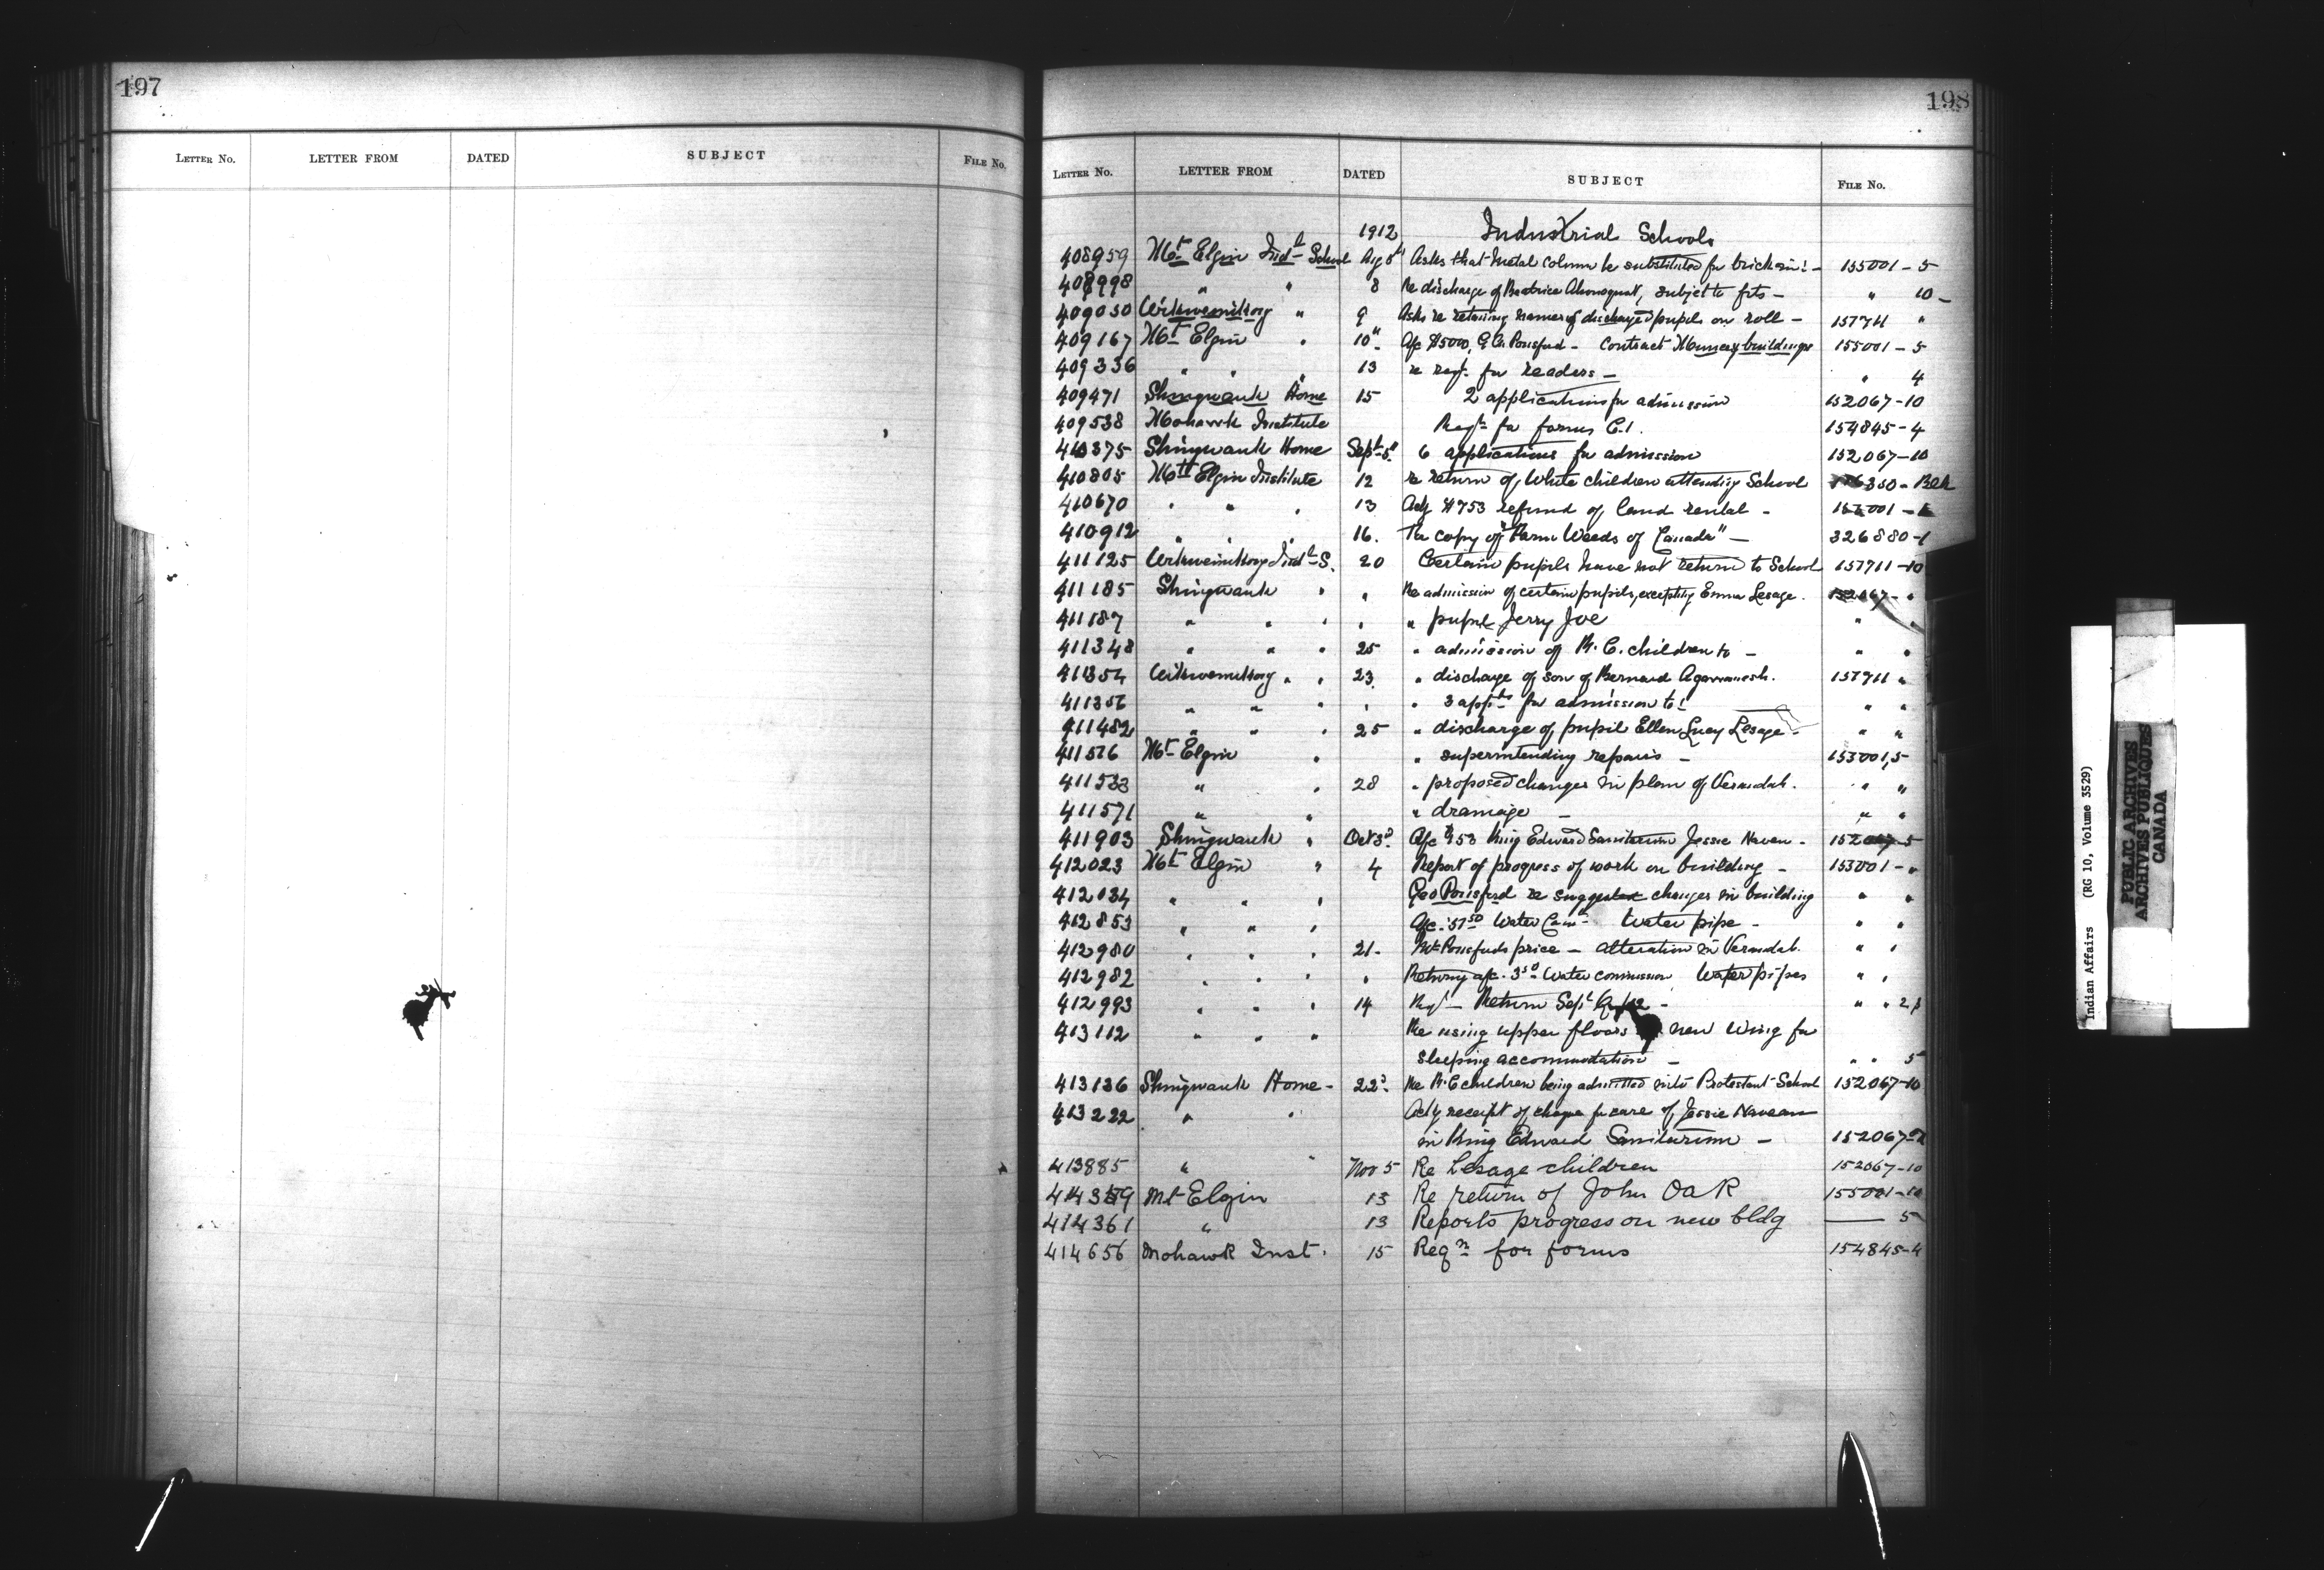 197
LETTER No. LETTER FROM DATED SUBJECT FILE No.
198
LETTER No. LETTER FROM DATED SUBJECT FILE No.
1912 Industrial Schools
408959 Mt Elgin Indl School Aug 8 Asks that metal column be substituted for brick 155001-5
408998 " " 8 Re discharge of Beatrice , subject to fits - " 10-
409050 Wikwemikong " 9 Asks re retaining names of discharged pupils on roll - 157711 "
409167 Mt Elgin " 10 a/c $5000, Ponsford - Contract buildings 155001-5
409336 " " " 13 re reqn for readers - " 4
409471 Shingwauk Home 15 2 applications for admission 152067-10
409538 Mohawk Institute Reqn for forms 154845-4
410375 Shingwauk Home Sept 5 6 applications for admission 152067-10
410805 Mt Elgin Institute 12 re return of White children attending School
410670 " " " 13 Ack $753 refund of land rental -
410912 " " " 16. For copy of "Farm Weeds of Canada" - 326880-1
411125 Wikwemikong Indl S. 20 Certain pupils have not return to School 157711-10
411185 Shingwauk " " Re admission of certain pupils, excepting Emma Lesage. 152067- "
411187 " " " " " pupil Jerry Joe " "
411348 " " " 25 " admission of R. C. children to - " "
411354 Wikwemikong " " 23 " discharge of son of Bernard . 157711 "
411356 " " " " " 3 appns for admission to " "
411482 " " " 25 " discharge of pupil Ellen Lucy Lesage - " "
411516 Mt Elgin " " superintending repairs - 155001,5
411533 " " 28 " proposed changes in plan of Verandah. " "
411571 " " " drainage - " "
411903 Shingwauk " Oct 3d a/c $53 King Edward Sanitarium Jessie Naveau - 152067-5
412023 Mt Elgin " 4 Report of progress of work on building - 155001- "
412034 " " " Geo Ponsford re suggested changes in building " "
412853 " " " a/c Water Water pipe - " "
412980 " " " 21- Mr Ponsfords price - alteration in Verandah. " "
412982 " " " " Returning a/c. Water commission Water pipes " "
412993 " " " 14 Return Sept " " 2
413112 " " " Re using upper floors new wing for
sleeping accommodation - " " 5
413136 Shingwauk Home - 22d Re R.C children being admitted into Protestant School 152067-10
413222 " " Ack receipt of cheque for care of Jessie Naveau
in King Edward Sanitarium - 152067-
413885 " " Nov 5 Re Lesage children 152067-10
Mt Elgin 13 Re return of John Oak 155001-10
414361 " 13 Reports progress on new bldg —— 5
414656 Mohawk Inst. 15 Reqn for forms 154845-4
Indian Affairs (RG 10, Volume 3529)
PUBLIC ARCHIVES
ARCHIVES PUBLIQUES
CANADA